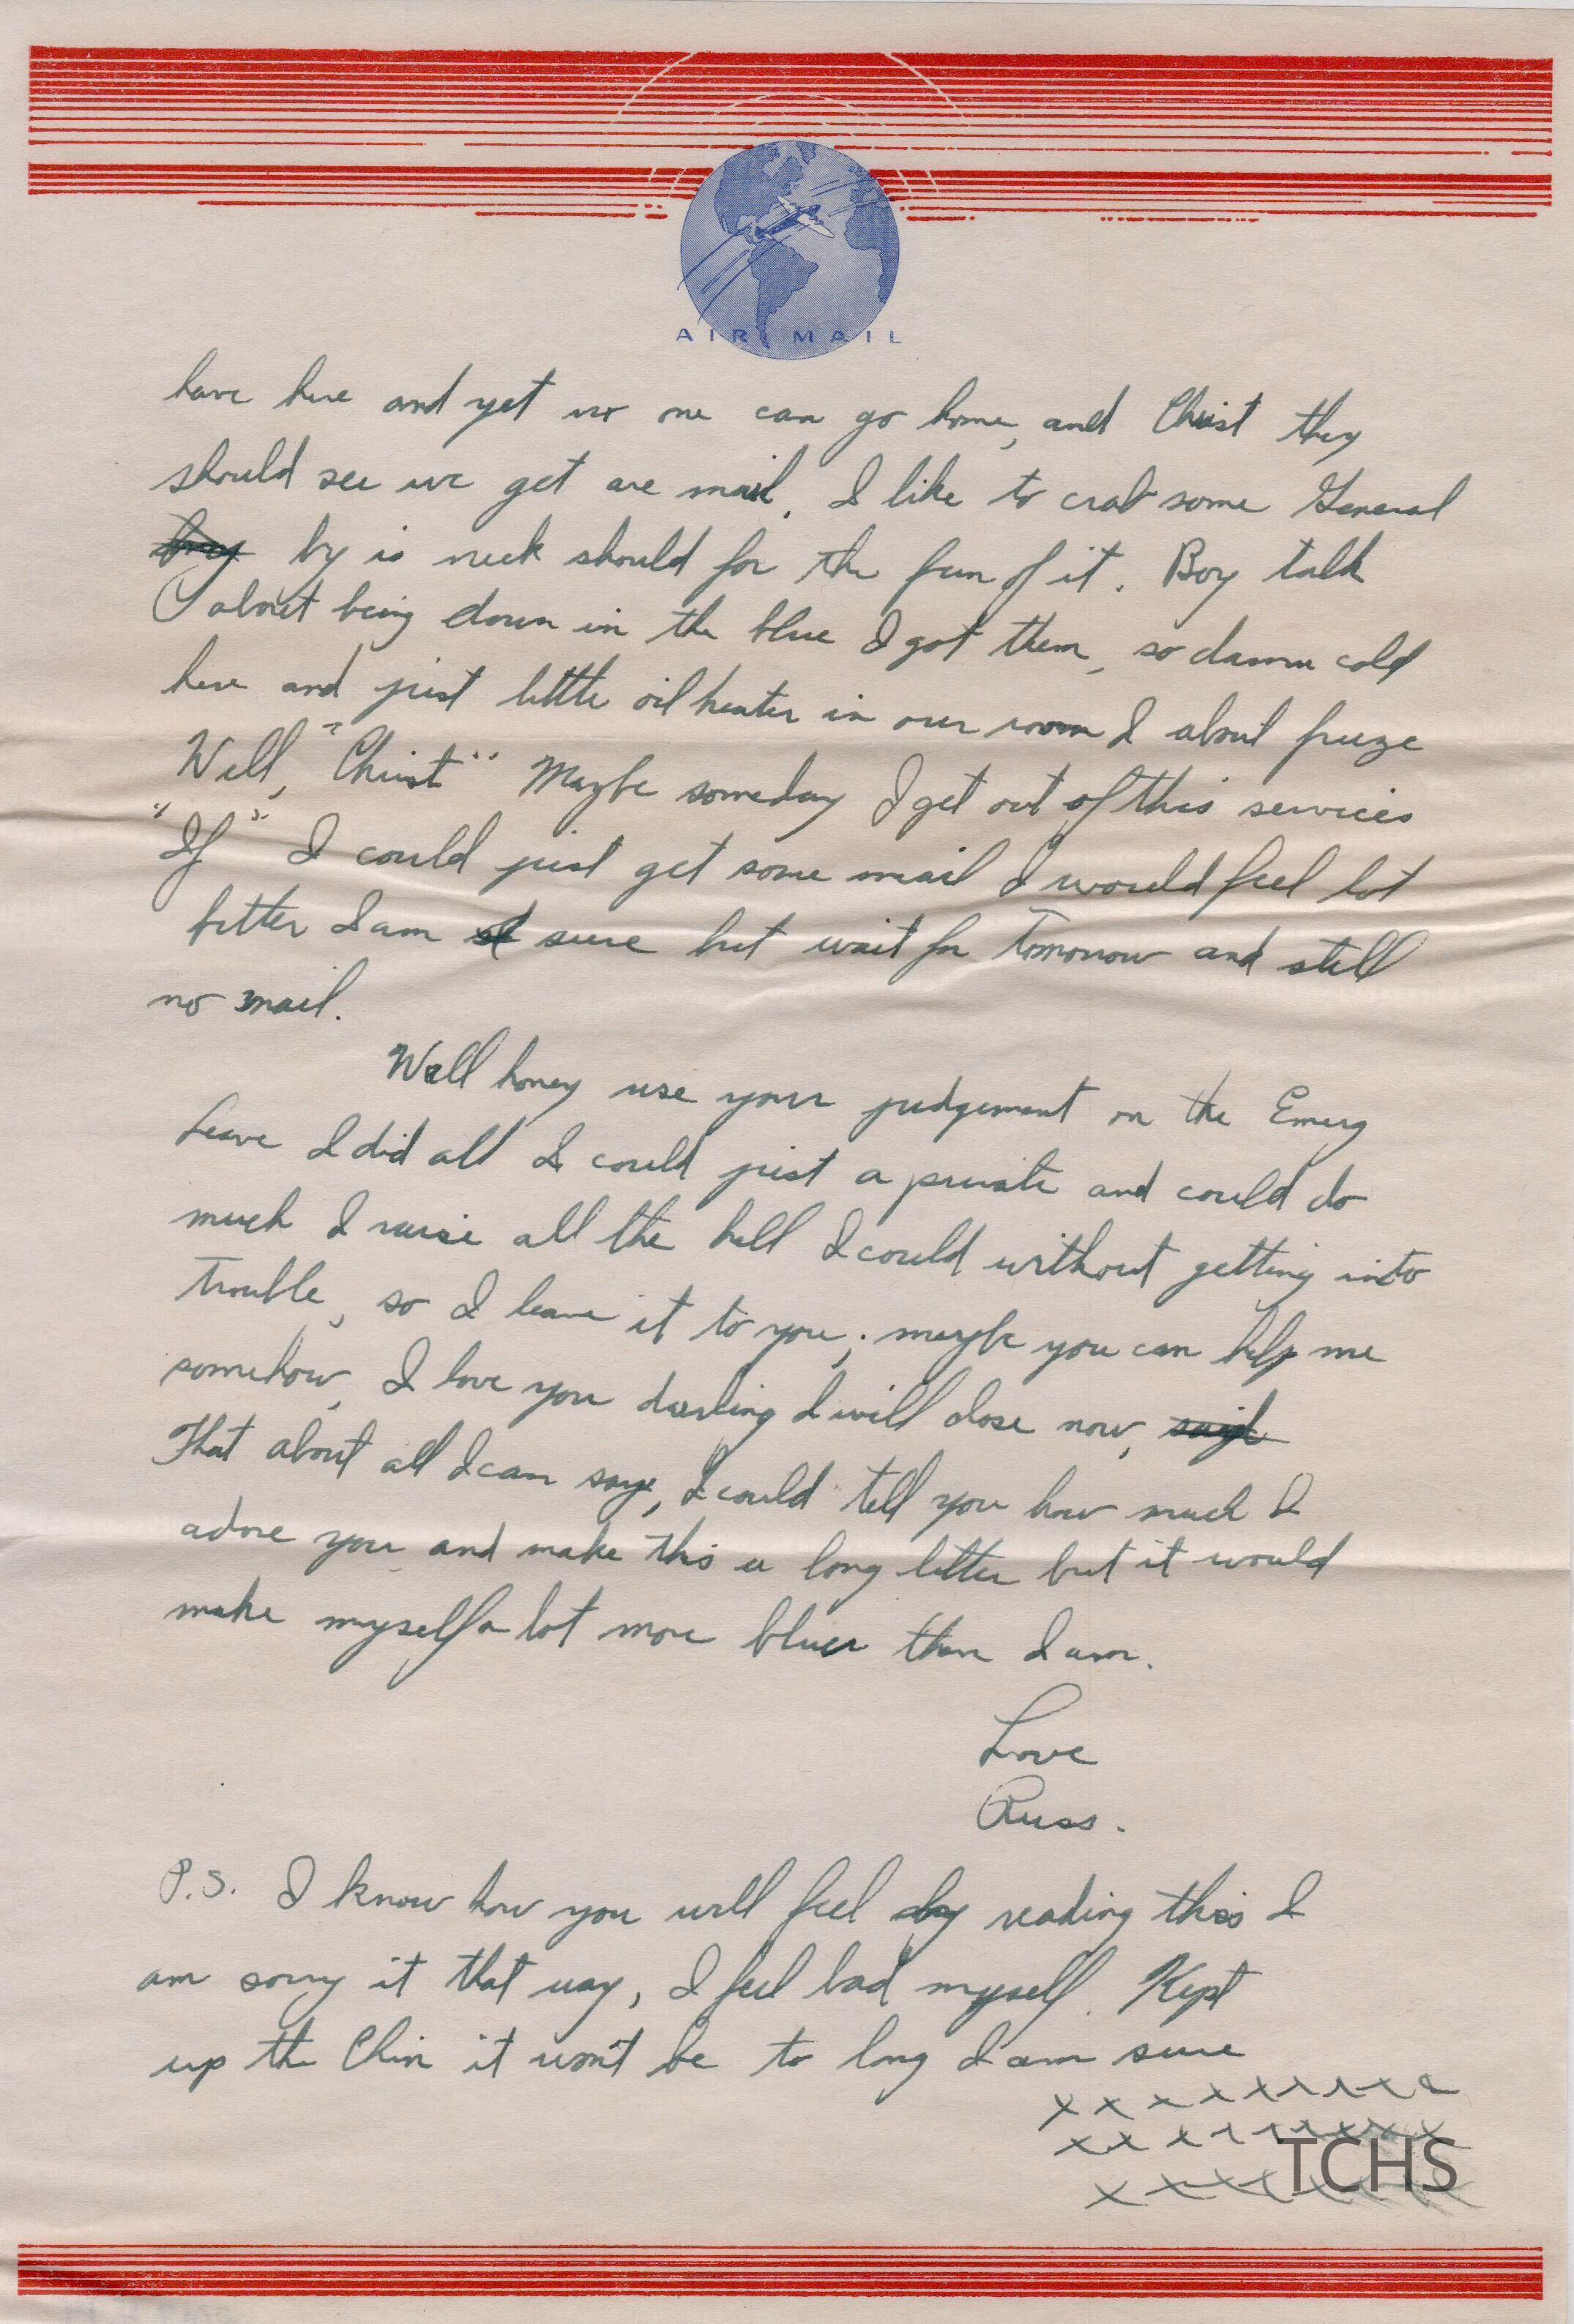 AIR MAIL
have here and yet no one can go home, and Christ they
should see we get are mail. I like to crab some General
by is neck should for the fun of it. Boy talk
about being down in the blue I got them, so damn cold
here and just little oil heater in our room I about freeze
Well, "Christ" Maybe someday I get out of this services
"If" I could just get some mail I would feel lot
better I am sure but wait for Tomorrow and still
no mail.
Well honey use your judgement on the Emerg
Leave I did all I could just a private and could do
much I raise all the hell I could without getting into
Trouble, so I leave it to you, maybe you can help me
somehow, I love you darling I will close now,
That about all I can say, I could tell you how much I
adore you and make this a long letter but it would
make myself a lot more bluer than I am.
Love
Russ.
P.S. I know how you will feel by reading this I
am sorry it that way, I feel bad myself. Kept
up the Chin it won't be to long I am sure
x x x x x x x x x x
x x x x x x x x x x
x x x x x x x x
TCHS